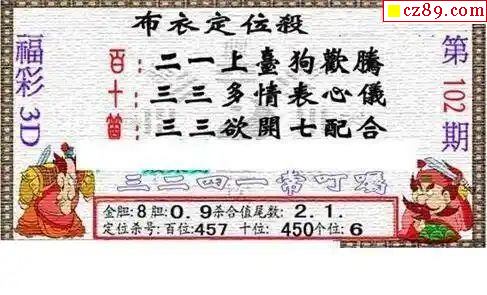 cz89.com
布衣定位殺
福彩3D
第102期
百：二一上臺狗歡騰
十：三三多情表心儀
個：三三欲開七配合
三二四一常叮囑
金胆:8胆:0.9杀合值尾数:2.1.
定位杀号:百位:457 十位:450个位:6